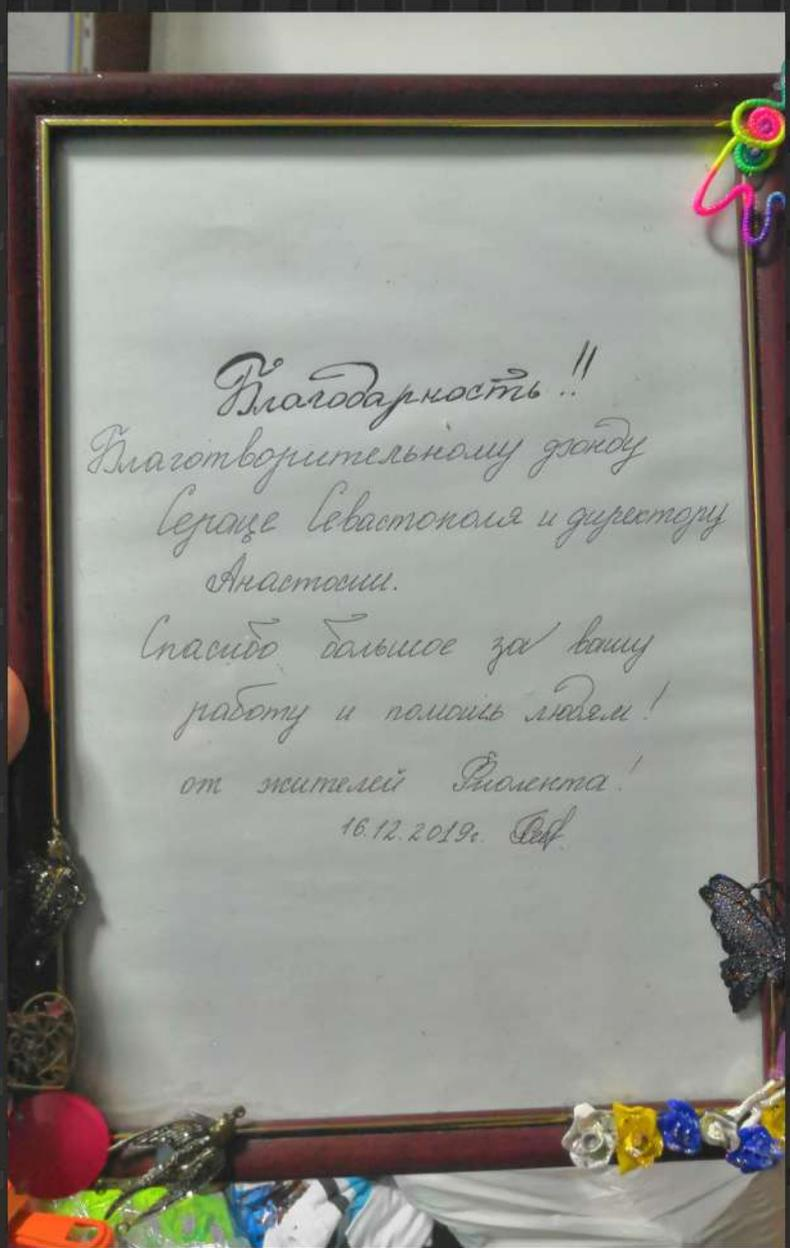 Благодарность!!
Благотворительному фонду
Сердце Севастополя и директору
Анастосии.
Спасибо большое за вашу
работу и помошь людям!
от жителей Фиолента!
16.12.2019г.